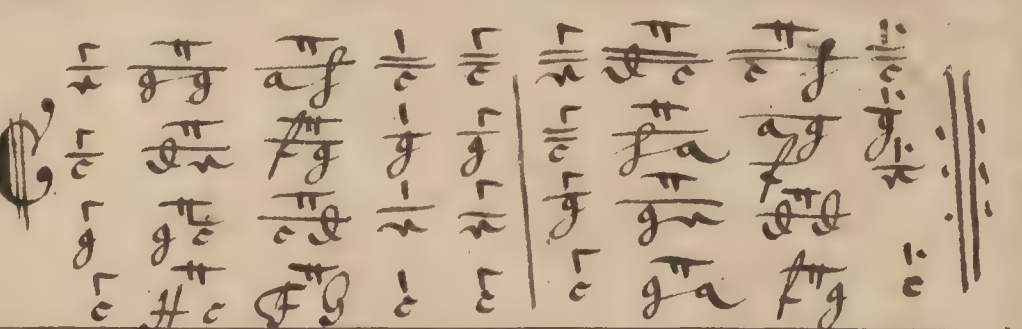 e g g a f c c e d c c f c
c d e f g g g c f a a g f g
g g c c d e e g g e d d e
c H c F G c c c g a f g c